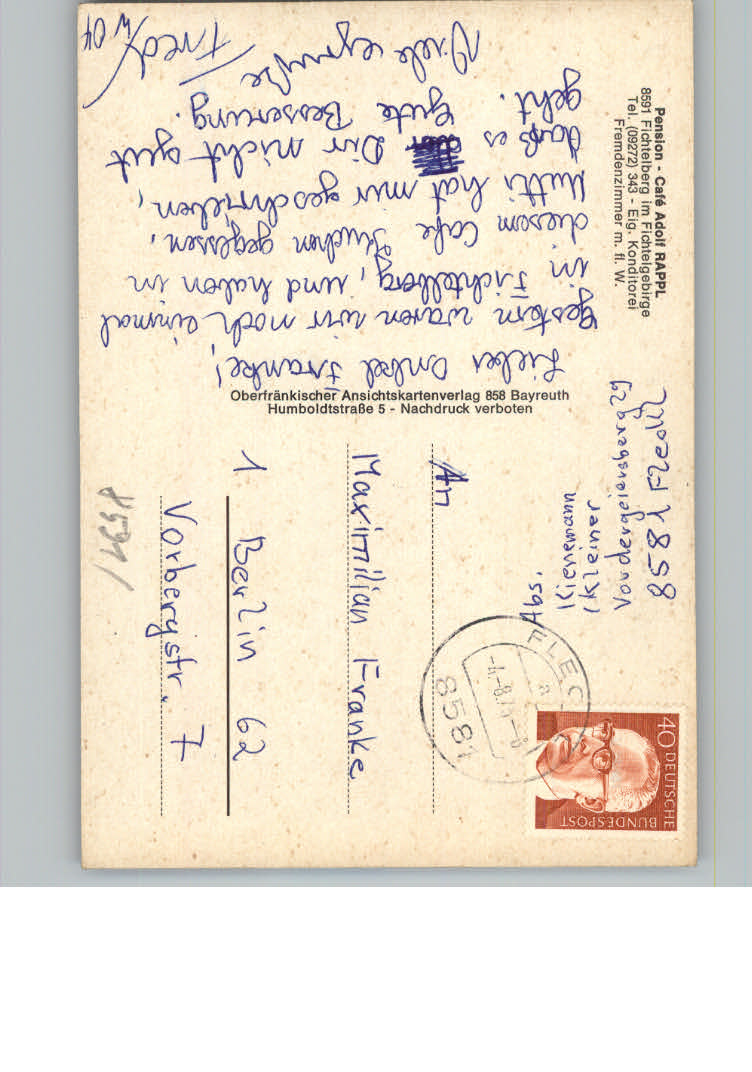 Pension - Café Adolf RAPPL
8591 Fichtelberg im Fichtelgebirge
Tel. (09272) 343 - Eig. Konditorei
Fremdenzimmer m. fl. W.
Lieber Onkel Franke!
Gestern waren wir noch einmal
in Fichtelberg, und haben in
diesem Cafe Kuchen gegessen.
Mutti hat mir geschrieben,
daß es Dir nicht gut
geht. Gute Besserung.
Viele Grüße
Fred
Oberfränkischer Ansichtskartenverlag 858 Bayreuth
Humboldtstraße 5 - Nachdruck verboten
Abs.
Kleiner
8581 Fleckl
An
Maximilian Franke
1 Berlin 62
Vorbergstr. 7
8581
40 DEUTSCHE
BUNDESPOST